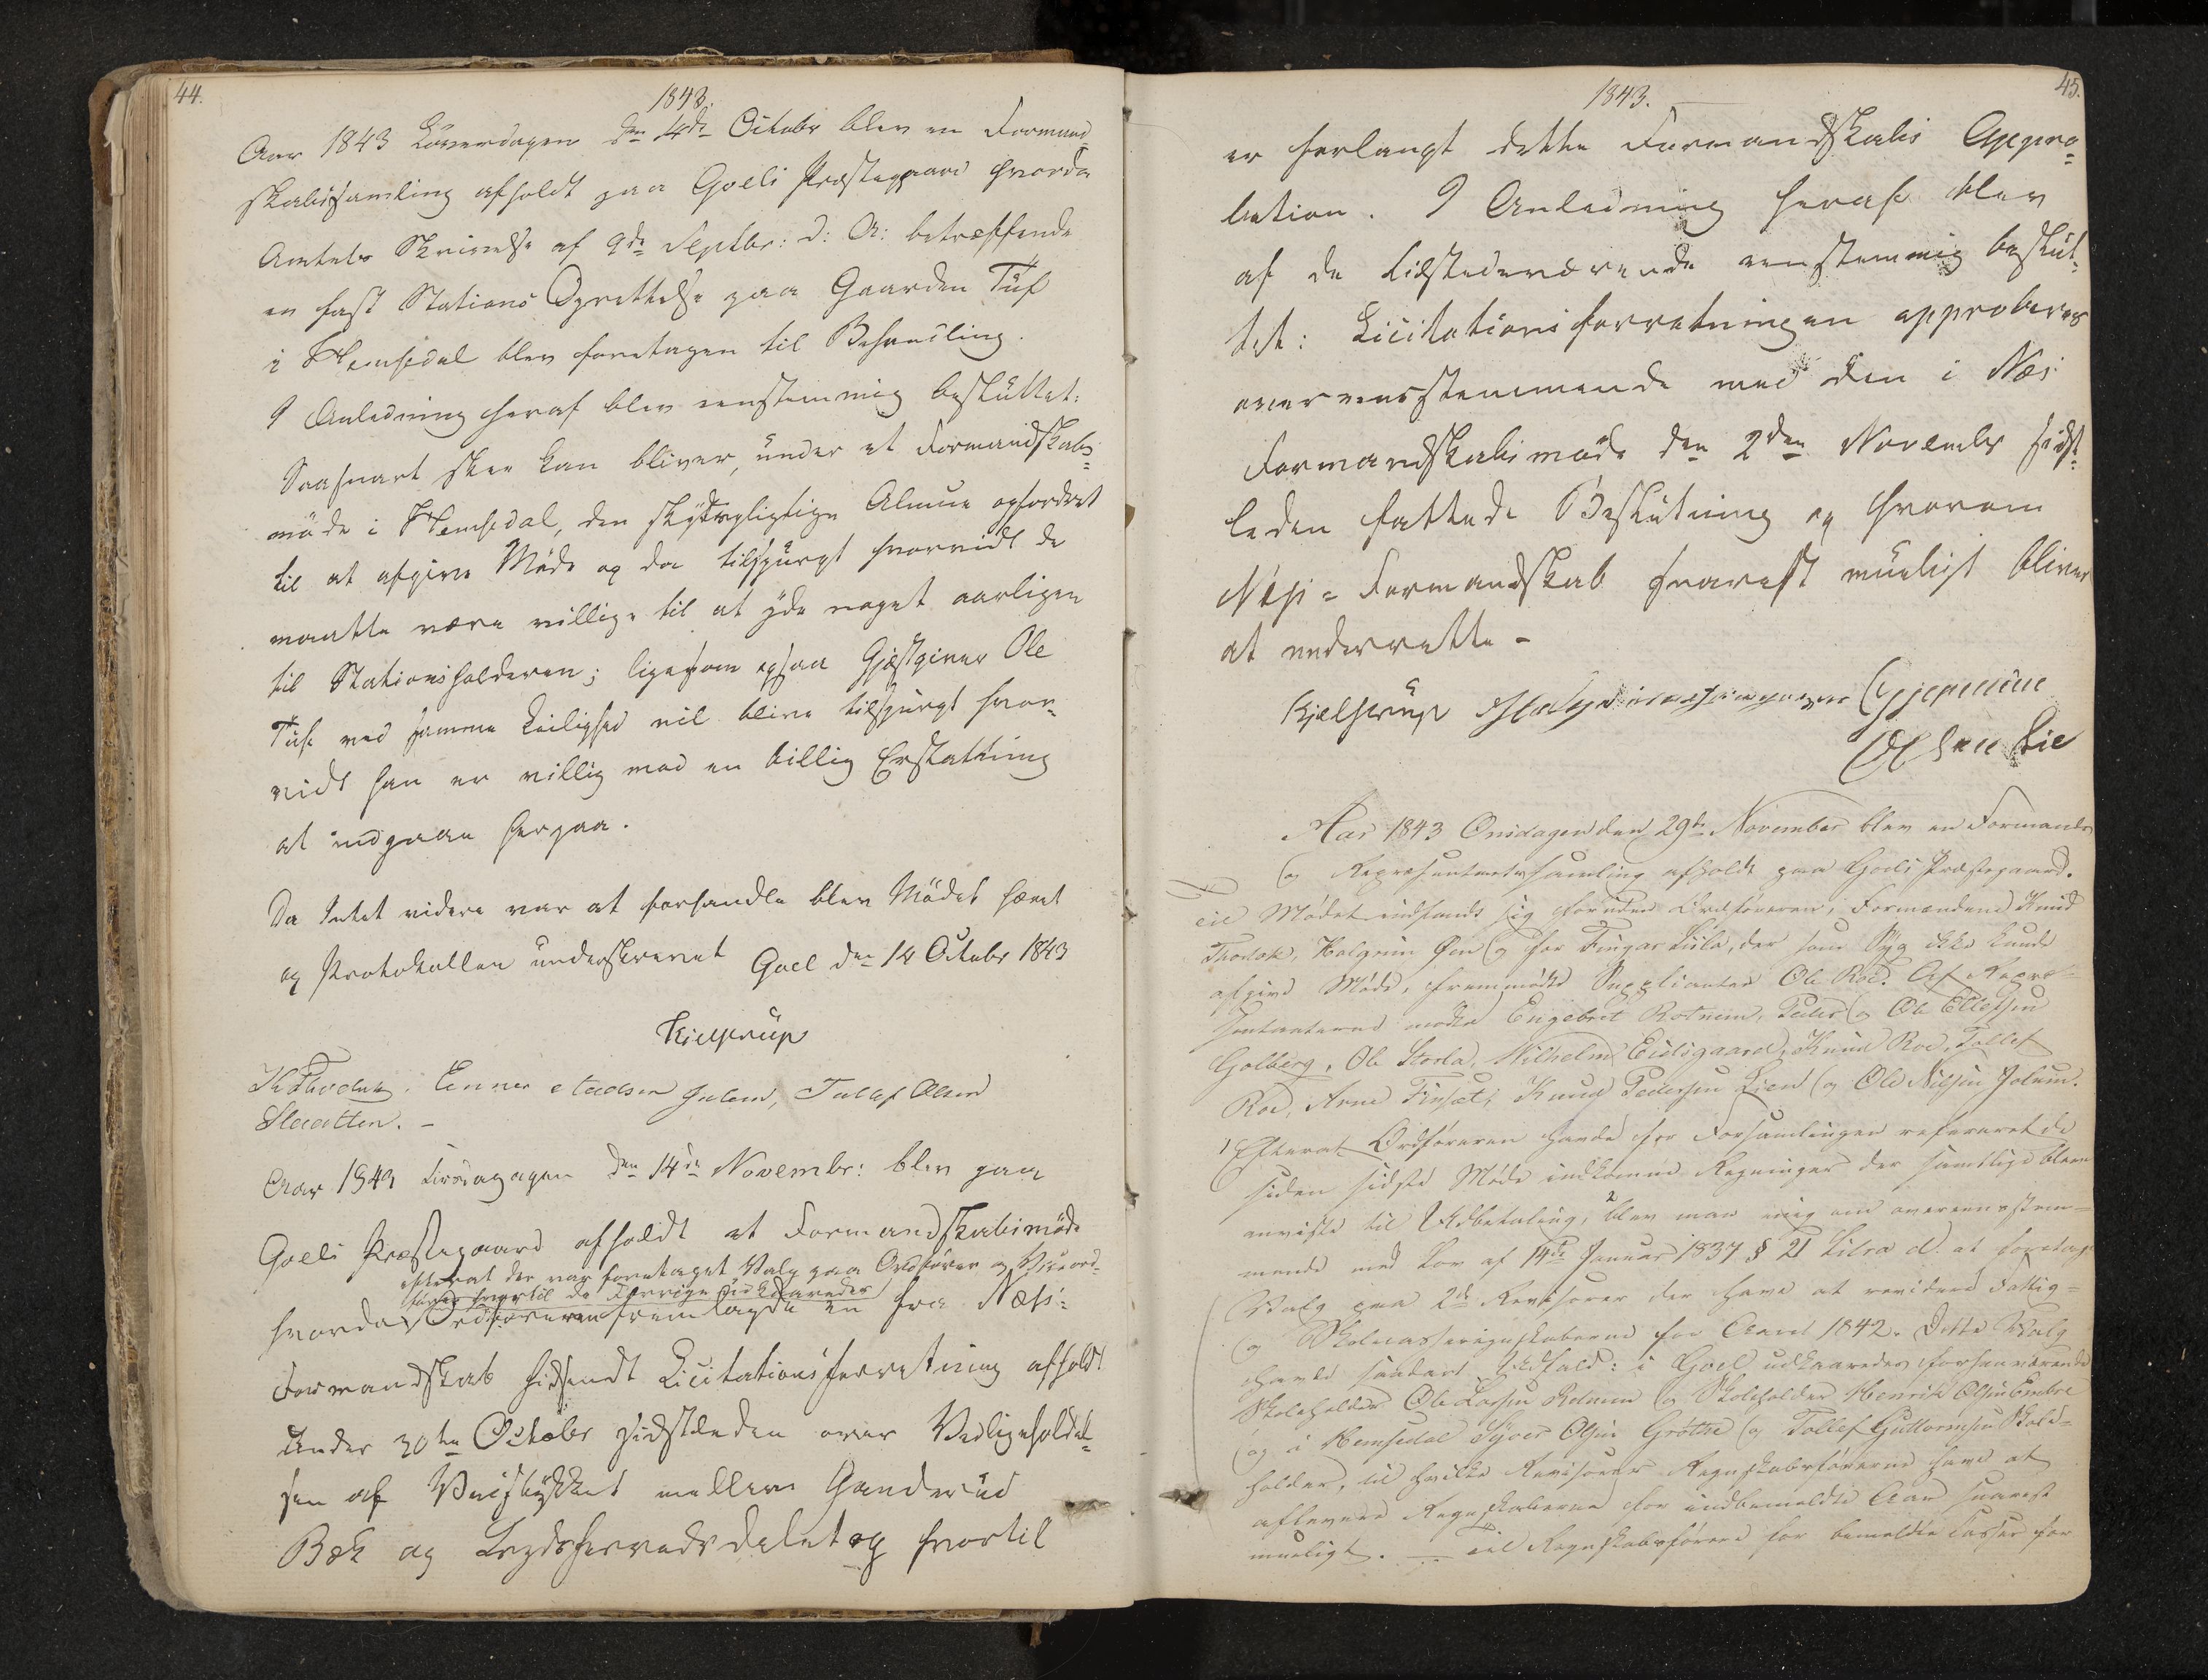 44.
1843.
Aar 1843 Löverdagen den 14de October blev en Formand-
skabssamling afholdt paa Goels Præstegaard hvorda
Amtets Skrivelse af 9de Septbr: d: A: betræffende
en fast Stations Oprettelse paa Gaarden Tuf
i Hemsedal blev foretagen til Behandling.
I Anledning heraf blev eenstemmig besluttet:
Saasnart skee kan bliver, under et Formandskabs-
möde i Hemsedal, den skydspligtige Almue opfordret
til at afgive Möde og da tilspurgt hvorvidt de
maatte være villige til at yde noget aarligen
til Stationsholderen; ligesom ogsaa Gjæstgiver Ole
Tuf ved samme Leilighed vil blive tilspurgt hvor-
vidt han er villig mod en billig Erstatning
at indgaae herpaa.
Da Intet videre var at forhandle blev Mödet hævet
og Protokollen underskrevet Goel den 14 October 1843
Kjelstrup
K Thodok. Tollef Olsen
Slaatten. -
Aar 1843 Tirsdagen den 14de Novembr: blev paa
Goels Præstegaard afholdt et Formandskabsmöde
efterat der var foretaget Valg paa Ordförer og Viceord-
förer hvortil de Forrige udkaaredes
hvorda Ordföreren fremlagde en fra Næs-
Formandskab hidsendt Licitationsforretning afholdt
under 30te October sidstleden over Vedligeholdel-
sen af Veistykket mellem Ganderud
Bæk og Bygdeherredsdelet og hvortil
1843.
45.
er forlangt dette Formandskabs Appro-
bation. I Anledning heraf blev
af de tilstedeværende eenstemmig beslut-
tet: Licitationsforretningen approberes
overeensstemmende med den i Næs
Formandskabsmöde den 2den November sidst-
leden fattede Beslutning og hvorom
Næs-Formandskab snarest mueligt bliver
at underrette -
Kjelstrup
Olsen Lie
Aar 1843 Onsdagen den 29de November blev en Formands
og Repræsentantssamling afholdt paa Goels Præstegaard.
Til Mödet indfandt sig foruden Ordföreren, Formændene Knud
Thodok, Halgrim Øen og for Fingar Lülo, der som Syg ikke kunde
afgive Möde, fremmödte Suppleanten Ole Roe. Af Repræ-
sentanterne mödte Engebret Rotnem, Peder og Ole Ellefsen
Golberg, Ole Storla, Wilhelm Eidsgaard, Knud Roe, Tollef
Roe, Arne Finset, Knud Pedersen Lien og Ole Nilsen Jolum.
1 Efterat Ordföreren havde for Forsamlingen refereret de
siden sidste Möde indkomne Regninger der samtlige bleve
anviste til Udbetaling, 2 blev man enig om overeensstem-
mende med Lov af 14de Januar 1837 § 21 Litra d. at foretage
Valg paa 2de Revisorer der have at revidere Fattig-
og Skolecasseregnskaberne for Aaret 1842. Dette Valg
havde saadant Udfald: i Goel udkaaredes forhenværende
Skoleholder Ole Larsen Rotnem og Skoleholder Henrik Olsen Embre
og i Hemsedal Syver Olsen Gröthe og Tollef Guttormsen Skole-
holder, til hvilke Revisorer Regnskabsförerne have at
aflevere Regnskaberne for indbemeldte Aar snarest
mueligt. — Til Regnskabsförere for bemeldte Casser for